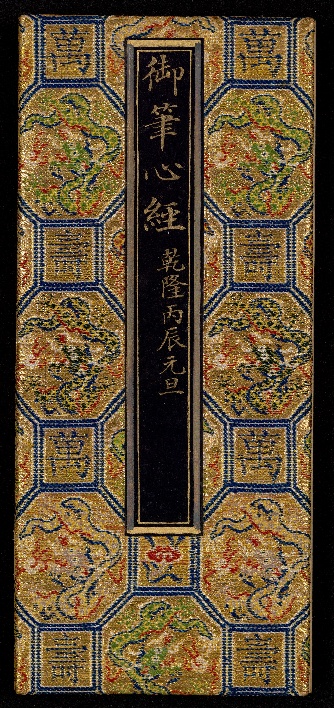 御筆心經
乾隆丙辰元旦
萬
萬
壽
壽
萬
萬
壽
壽